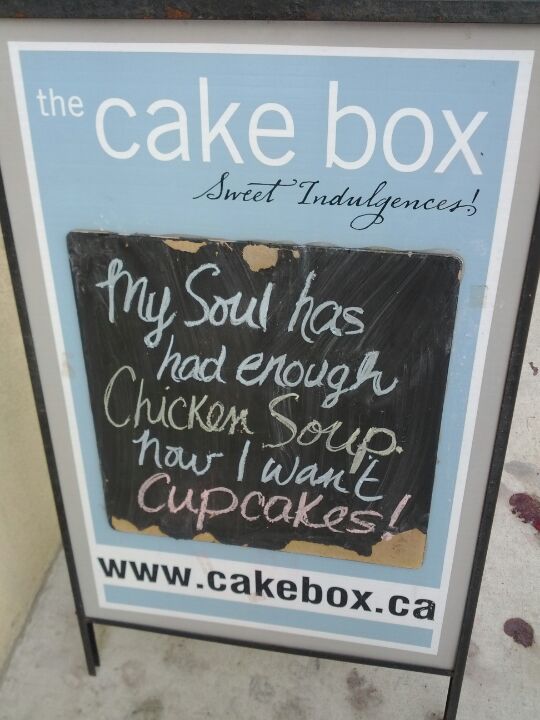 the cake box
Sweet Indulgences!
My Soul has
had enough
Chicken Soup.
now I want
Cupcakes!
www.cakebox.ca